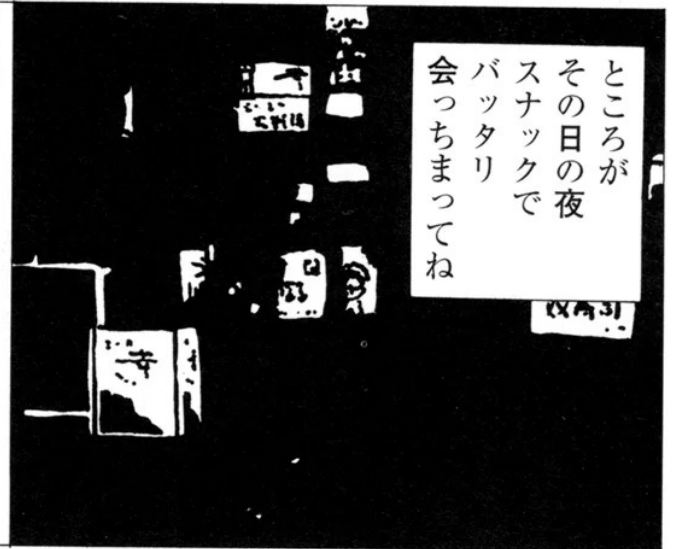 ところが
その日の夜
スナックで
バッタリ
会っちまってね